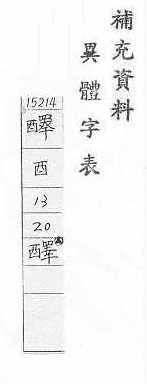 補充資料
異體字表
15214
醳
酉
13
20